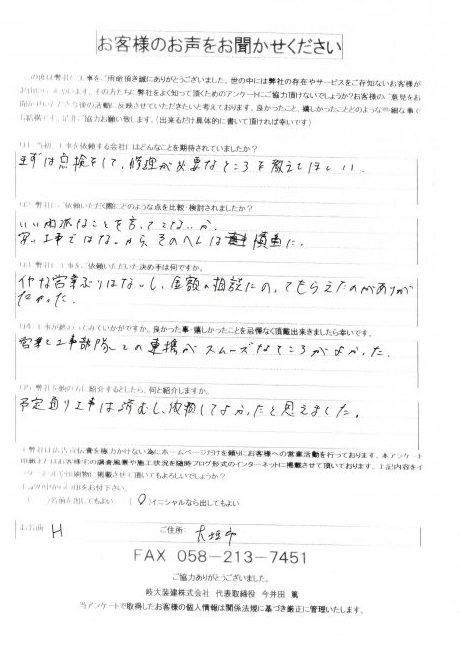 お客様のお声をお聞かせください
の度は弊社に工事をご用命頂き誠にありがとうございました。世の中には弊社の存在やサービスをご存知ないお客様が
その方たちに弊社をよく知って頂くためのアンケートにご協力頂けないでしょうか？お客様のご意見をお
今後の活動に反映させていただきたいと考えております。良かったこと、嬉しかったことどのような些細な事で
結構です。是非ご協力お願い致します。（出来るだけ具体的に書いて頂ければ幸いです）
Q1 当初、工事を依頼する会社にはどんなことを期待されていましたか？
まずは点検をして、修理が必要なところを教えてほしい。
Q2 弊社にご依頼いただく際にどのような点を比較・検討されましたか？
いい加減なことを言ってこないか。
安い工事ではないから、そのへんは慎重に。
Q3 弊社に工事をご依頼いただいた決め手は何ですか。
イヤな営業ぶりはないし、金額の相談にのってもらえたのがありが
たかった。
Q4 工事が終わってみていかがですか。良かった事・嬉しかったことを忌憚なく頂戴出来ましたら幸いです。
営業と工事部隊との連携がスムーズなところがよかった。
弊社を他の方に紹介するとしたら、何と紹介しますか。
予定通り工事は済むし、依頼してよかったと思えました。
弊社は広告宣伝費を極力かけない為にホームページだけを頼りにお客様への営業活動を行っております。本アンケート
施工状況を随時ブログ形式のインターネットに掲載させて頂いております。上記内容をイ
に掲載させて頂いてもよろしいでしょうか？
をお付下さい。
（ ）名前を出してもよい （○）イニシャルなら出してもよい
お名前 H ご住所： 大垣市
FAX 058－213－7451
ご協力ありがとうございました。
岐大装建株式会社 代表取締役 今井田 篤
当アンケートで取得したお客様の個人情報は関係法規に基づき厳正に管理いたします。